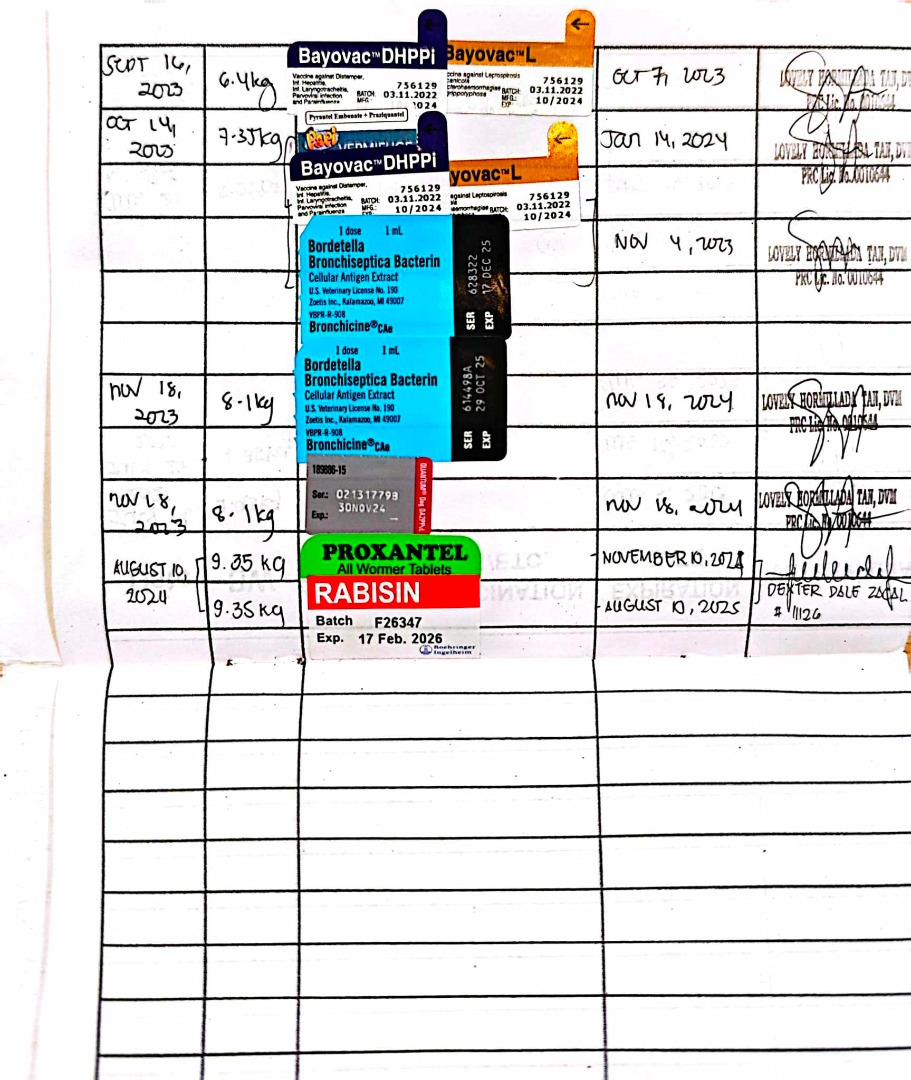 SEPT 16,
2023
6.4kg
Bayovac™ DHPPi
Vaccine against Distemper,
Inf. Hepatitis,
Inf. Laryngotracheitis,
Parvoviral infection
and Parainfluenza
756129
BATCH: 03.11.2022
MFG.:
2024
Bayovac™ L
Leptospirosis
756129
BATCH: 03.11.2022
MFG.:
EXP. 10/2024
OCT 7, 2023
LOVELY HORMILLADA TAN, DVM
PRC Lic. No. 0010644
OCT 14,
2023
7.35kg
Pyrantel Embonate + Praziquantel
JAN 14, 2024
LOVELY HORMILLADA TAN, DVM
PRC Lic. No. 0010644
Bayovac™ DHPPi
Vaccine against Distemper,
Inf. Hepatitis,
Inf. Laryngotracheitis,
Parvoviral infection
and Parainfluenza
756129
BATCH: 03.11.2022
MFG.:
EXP.: 10/2024
yovac™ L
Leptospirosis
756129
BATCH: 03.11.2022
MFG.:
10/2024
NOV 4, 2023
LOVELY HORMILLADA TAN, DVM
PRC Lic. No. 0010644
1 dose 1 mL
Bordetella
Bronchiseptica Bacterin
Cellular Antigen Extract
U.S. Veterinary License No. 190
Zoetis Inc., Kalamazoo, MI 49007
VBPR-R-908
Bronchicine® CAe
SER 628322
EXP 17 DEC 25
1 dose 1 mL
Bordetella
Bronchiseptica Bacterin
Cellular Antigen Extract
U.S. Veterinary License No. 190
Zoetis Inc., Kalamazoo, MI 49007
VBPR-R-908
Bronchicine® CAe
SER 614498A
EXP 29 OCT 25
NOV 18,
2023
8.1kg
NOV 18, 2024
LOVELY HORMILLADA TAN, DVM
PRC Lic. No. 0010644
NOV 18,
2023
8.1kg
189886-15
Ser.: 02131779B
Exp.: 30NOV24
QUANTUM® Dog DA2PPvL
NOV 18, 2024
LOVELY HORMILLADA TAN, DVM
PRC Lic. No. 0010644
AUGUST 10,
2024
9.35 kg
PROXANTEL
All Wormer Tablets
NOVEMBER 10, 2024
9.35 kg
RABISIN
Batch F26347
Exp. 17 Feb. 2026
Boehringer
Ingelheim
AUGUST 10, 2025
DEXTER DALE ZAGAL
# 11126